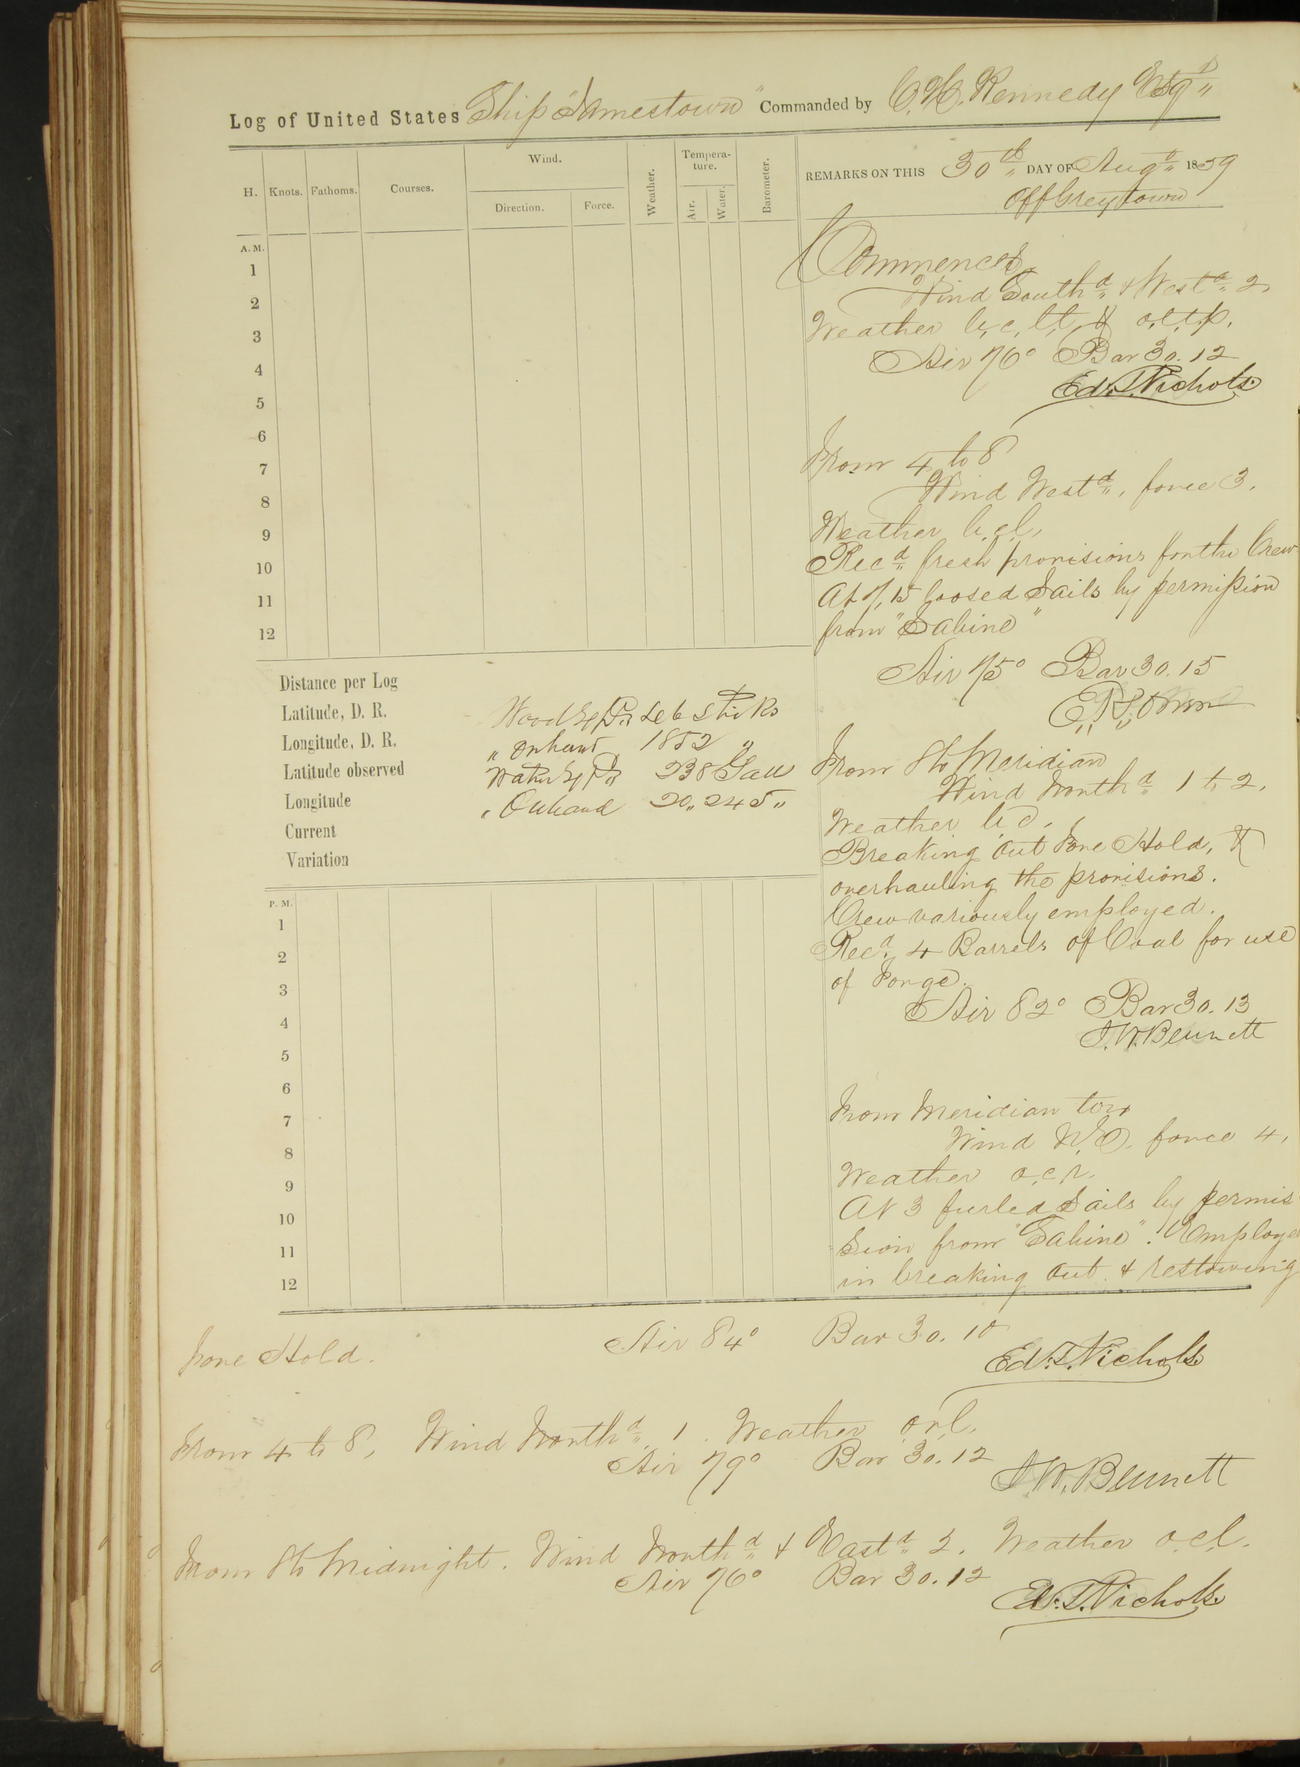 Log of United States Ship "Jamestown" Commanded by C. H. Kennedy Esqr
H. Knots. Fathoms. Courses. Wind. Direction. Force. Weather. Tempera-ture. Air. Water. Barometer.
REMARKS ON THIS 30th DAY OF Augt 1859
Off Greytown
A. M.
1
2
3
4
5
6
7
8
9
10
11
12
Commences
Wind Southd & Westd 2,
Weather b,c,l,t, & o,l,t,p.
Air 76° Bar 30.12
Ed. T. Nichols.
From 4 to 8
Wind Westd, force 3.
Weather b.c.l.
Recd fresh provisions for the Crew
At 7,15 loosed Sails by permission
from "Sabine"
Air 75° Bar 30.15
Distance per Log
Latitude, D. R.
Longitude, D. R.
Latitude observed
Longitude
Current
Variation
Wood Expd 26 Sticks
" Onhand 1852 "
Water Expd 238 Gall
" Onhand 20,245 "
From 8 to Meridian
Wind Northd 1 to 2,
Weather b.c.
Breaking out Fore Hold, &
overhauling the provisions.
Crew variously employed.
Recd 4 Barrels of Coal for use
of Forge.
Air 82° Bar 30.13
J. W. Bennett
P. M.
1
2
3
4
5
6
7
8
9
10
11
12
From Meridian to 4
Wind N.E. force 4,
Weather o.c.r.
At 3 furled Sails by permis
sion from "Sabine". Employed
in breaking out & restowing
Fore Hold. Air 84° Bar 30.10
Ed. T. Nichols
From 4 to 8, Wind Northd, 1. Weather o.r.l.
Air 79° Bar 30.12
J. W. Bennett
From 8 to Midnight. Wind Northd & Eastd 2. Weather o.c.l.
Air 76° Bar 30.12
Ed. T. Nichols